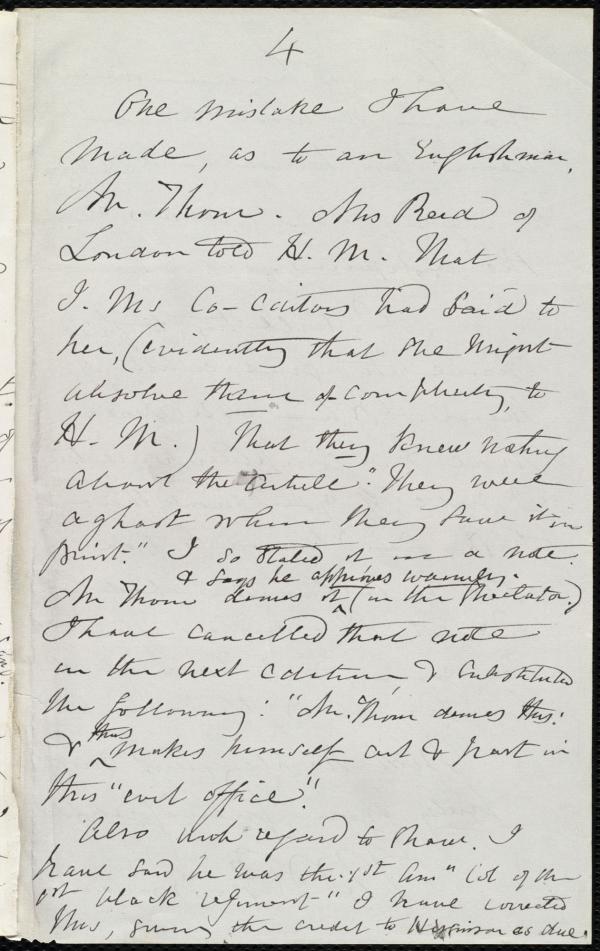 4
One mistake I have
made, as to an Englishman,
Mr. Thom. Mrs Reid of
London told H. M. that
J. M's co-editors had said to
her, (evidently that she might
absolve them of complicity, to
H. M.) that they knew nothing
about the article. "They were
aghast when they saw it in
print." I so stated it in a note.
& says he approves warmly.
Mr Thom denies it (in the Spectator.)
I have cancelled that note
in the next edition, & substituted
the following: "Mr. Thom denies this:
& thus makes himself art & part in
this "evil office"."
Also with regard to Shaw. I
have said he was the 1st Am" Col of the
1st black regiment" I have corrected
this, giving the credit to Higginson as due.